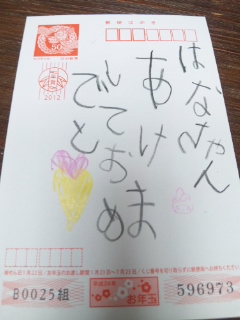 郵便はがき
50
2012
はなちゃん
あけま
しておめ
でと
B0025組
平成24年
お年玉
596973